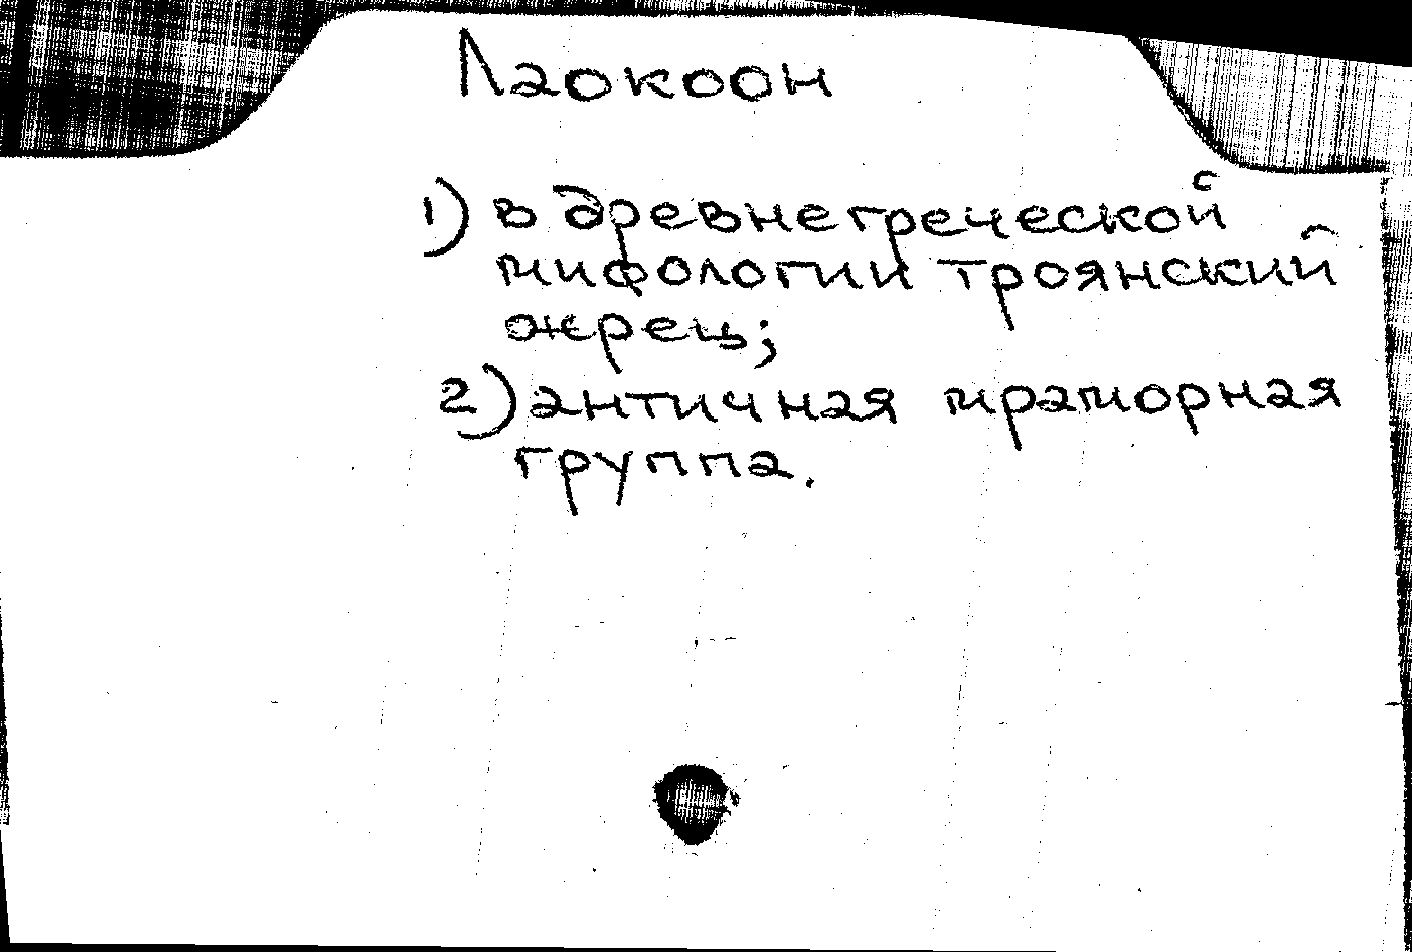 Лаокоон
1) в древнегреческой
мифологии троянский
жрец;
2) античная мраморная
группа.